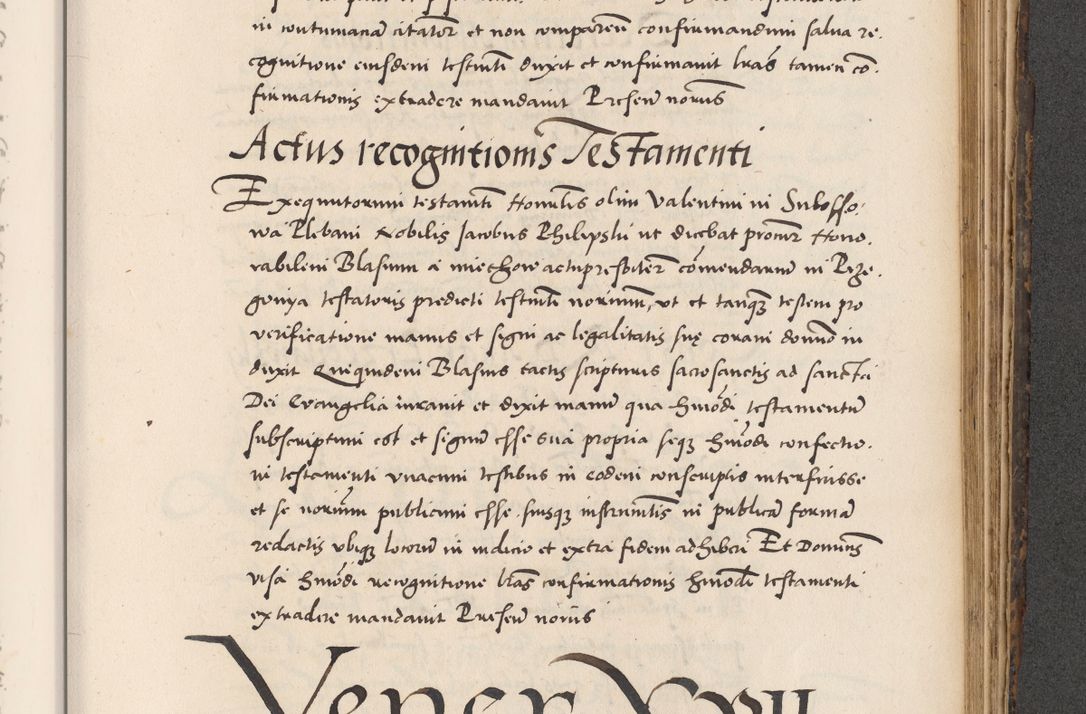 in contumaciā citator̄ et non comparen̄ confirmandum salua re-
cognitione eiusdem testmti duxit et confirmauit lr̄as tamen cō-
firmationis extradere mandauit Presen̄ norūs
Actus recognitionis Testamenti
Exequutorum testamti Honorabilis olim Valentini in Subosso-
wa Plebani Nobilis Jacobus Philipski ut dicebat procur̄ Hono-
rabilem Blasium a miechow actu presbiter̄ cōmendariū in Rzę-
goniya testatoris predicti testmti norium, vt et tanq̄ testem pro
verificatione manus et signi ac legalitatis suę coram domno in
duxit Quequidem Blasius tactis scripturis sacrosanctis ad sancta
Dei Evangelia iurauit et dixit manū qua hmōdi testamentū
subscriptum est et signū esse suā propriā seq̨ hmōdi confectio-
ni testamenti vnacum testibus in eodem conscriptis interfuisse
et se norium publicum esse suisq̨ instrumtis in publicā formā
redactis vbiq̨ locorū in iudicio et extra fidem adhiberi Et Dominus
visa hmōdi recognitione lr̄as confirmationis hmōdi testamenti
extradere mandauit Presen̄ norīs
Vener XVII